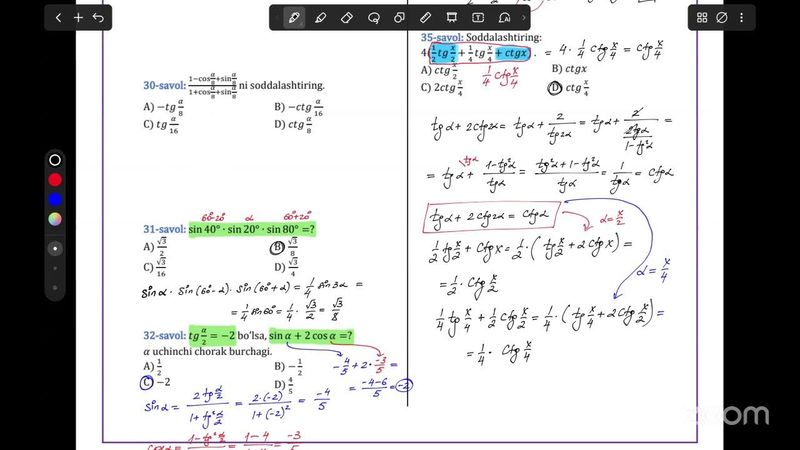 30-savol: (1−cos α/8+sin α/8)/(1+cos α/8+sin α/8) ni soddalashtiring.
A) −tg α/8 B) −ctg α/16
C) tg α/16 D) ctg α/8
60°-20° α 60°+20°
31-savol: sin 40° · sin 20° · sin 80° =?
A) √3/2 B) √3/8
C) √3/16 D) √3/4
sinα · sin(60°-α) · sin(60°+α) = 1/4 sin3α =
= 1/4 sin60° = 1/4 · √3/2 = √3/8
32-savol: tg α/2 = −2 bo'lsa, sin α + 2 cos α =?
α uchinchi chorak burchagi.
A) 1/2 B) −1/2
C) −2 D) 4/5
-4/5 + 2 · -3/5 =
= -4-6/5 = -2
sinα = 2tg α/2 / 1+tg² α/2 = 2·(-2) / 1+(-2)² = -4/5
cosα = 1-tg² α/2 = 1-4 = -3/5
35-savol: Soddalashtiring:
4(1/2 tg x/2 + 1/4 tg x/4 + ctgx) . = 4 · 1/4 ctg x/4 = ctg x/4
A) ctg x/2 1/4 ctg x/4 B) ctgx
C) 2ctg x/4 D) ctg x/4
tgα + 2ctg2α = tgα + 2/tg2α = tgα + 2 / 2tgα/1-tg²α =
= tgα + 1-tg²α/tgα = tg²α+1-tg²α/tgα = 1/tgα = ctgα
tgα
tgα + 2ctg2α = ctgα
α = x/2
1/2 tg x/2 + ctgx = 1/2 · (tg x/2 + 2ctgx) =
= 1/2 · ctg x/2
α = x/4
1/4 tg x/4 + 1/2 ctg x/2 = 1/4 · (tg x/4 + 2ctg x/2) =
= 1/4 · ctg x/4
zoom